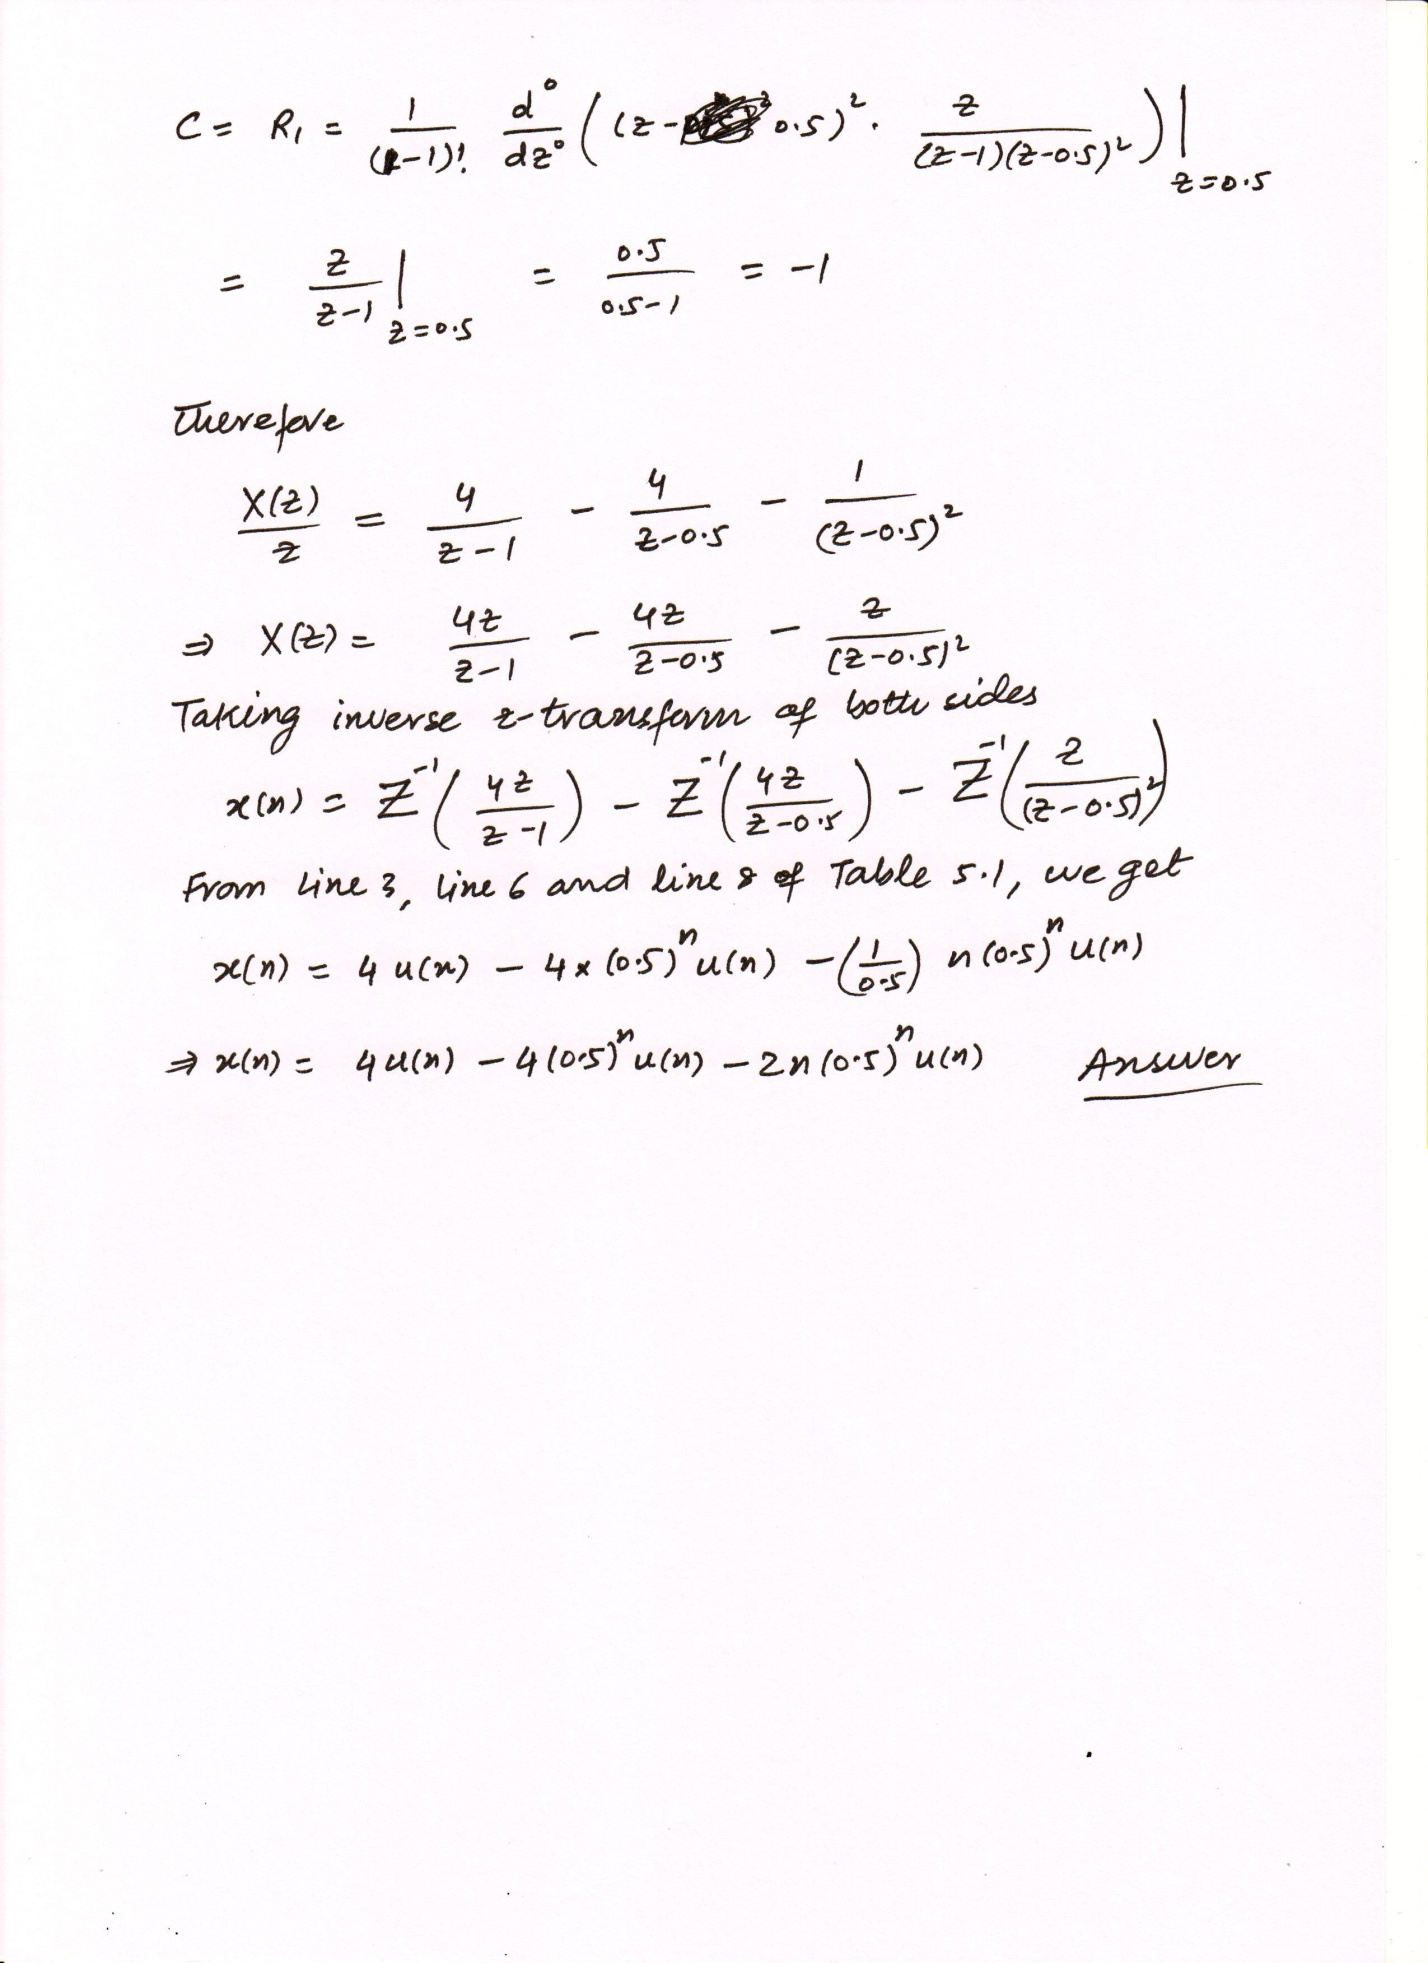 C = R₁ = 1/(1-1)! d⁰/dz⁰ ( (z- 0.5)² · z/((z-1)(z-0.5)²) ) |z=0.5
= z/(z-1) |z=0.5 = 0.5/(0.5-1) = -1
Therefore
X(z)/z = 4/(z-1) - 4/(z-0.5) - 1/(z-0.5)²
⇒ X(z) = 4z/(z-1) - 4z/(z-0.5) - z/(z-0.5)²
Taking inverse z-transform of both sides
x(n) = Z⁻¹(4z/(z-1)) - Z⁻¹(4z/(z-0.5)) - Z⁻¹(z/(z-0.5)²)
From Line 3, Line 6 and line 8 of Table 5.1, we get
x(n) = 4 u(n) - 4 × (0.5)ⁿ u(n) - (1/0.5) n (0.5)ⁿ u(n)
⇒ x(n) = 4 u(n) - 4 (0.5)ⁿ u(n) - 2n (0.5)ⁿ u(n) Answer